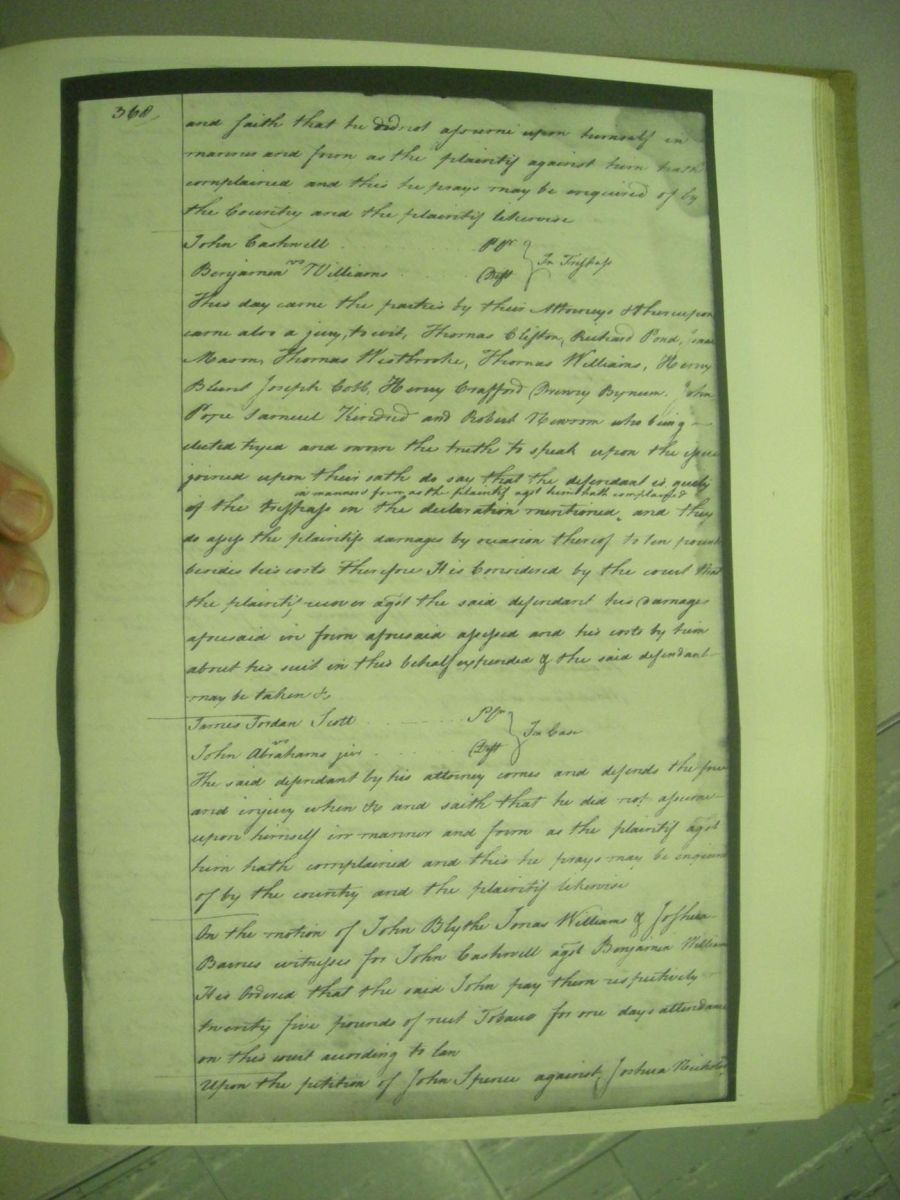 368
and saith that he did not assume upon himself in
manner and form as the plaintif against him hath
complained and this he prays may be enquired of by
the Country and the plaintif likewise
John Cashwell Plt
vs In Trespass
Benjamin Williams Deft
This day came the parties by their Attorneys & thereupon
came also a jury, to wit, Thomas Clifton, Richard Pond, Isaac
Mason, Thomas Westbrooke, Thomas Williams, Henry
Blunt Joseph Cobb, Henry Crafford Drewry Bynum. John
Pope Samuel Kindred and Robert Newsom who being
elected tryed and sworn the truth to speak upon the issue
joined upon their oath do say that the defendant is guilty
in manner & form as the plaintif agst him hath complained
of the trespass in the declaration mentioned, and they
do assess the plaintifs damages by occasion thereof to ten pounds
besides his costs therefore It is Considered by the court that
the plaintif recover agst the said defendant his damages
aforesaid in form aforesaid assessed and his costs by him
about his suit in this behalf expended & the said defendant
may be taken &c
James Jordan Scott Plt
vs In Case
John Abrahams jur Deft
The said defendant by his attorney comes and defends the force
and injury when &c and saith that he did not assume
upon himself in manner and form as the plaintif agst
him hath complained and this he prays may be enquired
of by the country and the plaintif likewise
On the motion of John Blythe Jonas Williams & Joshua
Barnes witnesses for John Cashwell agst Benjamin Williams
It is Ordered that the said John pay them respectively
twenty five pounds of nett Tobacco for one days attendance
on this court according to law
Upon the petition of John Spence against Joshua Nicholas